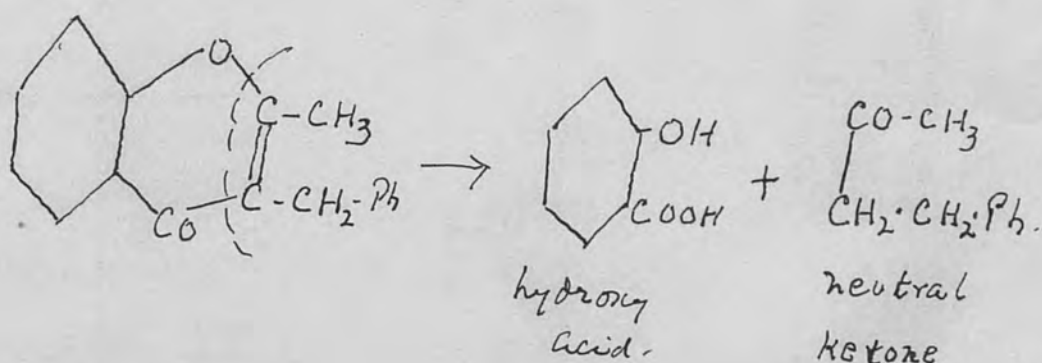 O
C-CH3
C-CH2-Ph
CO
OH
COOH
+
CO-CH3
CH2·CH2·Ph.
hydroxy
acid.
neutral
ketone